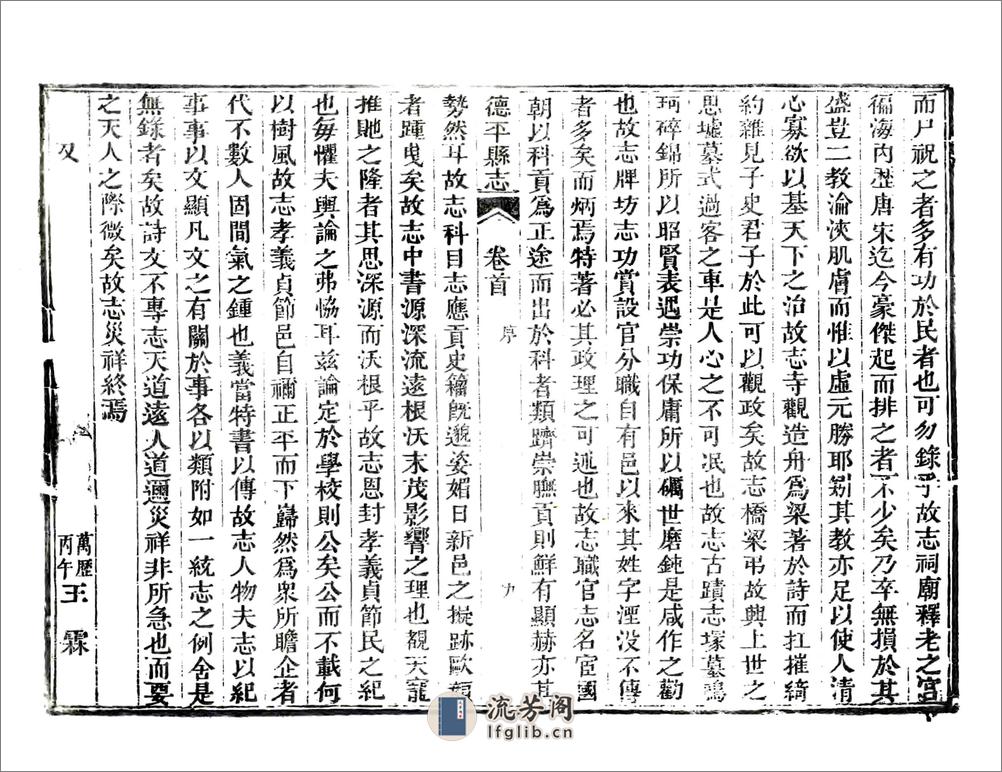 而尸祝之者多有功於民者也可勿錄乎故志祠廟釋老之宮
徧海內歷唐宋迄今豪傑起而排之者不少矣乃卒無損於其
盛豈二教淪浹肌膚而惟以虛元勝耶矧其教亦足以使人清
心寡欲以基天下之治故志寺觀造舟為梁著於詩而扛摧綺
約雜見子史君子於此可以觀政矣故志橋梁弔故興上世之
思墟墓式過客之車是人心之不可泯也故志古蹟志塚墓鴻
珂碎錦所以昭賢表遇崇功保庸所以礪世磨鈍是咸作之勸
也故志牌坊志功賞設官分職自有邑以來其姓字湮沒不傳
者多矣而炳焉特著必其政理之可述也故志職官志名宦國
朝以科貢為正途而出於科者類躋崇膴貢則鮮有顯赫亦其
德平縣志 卷首 序 九
勢然耳故志科目志應貢史籀既邈姿媚日新邑之擬跡歐顏
者踵曳矣故志中書源深流遠根沃末茂影響之理也覩天寵
推貤之隆者其思深源而沃根乎故志恩封孝義貞節民之紀
也每懼夫輿論之弗協耳茲論定於學校則公矣公而不載何
以樹風故志孝義貞節邑自禰正平而下巋然為眾所瞻企者
代不數人固間氣之鍾也義當特書以傳故志人物夫志以紀
事事以文顯凡文之有關於事各以類附如一統志之例舍是
無錄者矣故詩文不專志天道遠人道邇災祥非所急也而要
之天人之際微矣故志災祥終焉
又 萬歷丙午 王霖
流芳阁
lfglib.cn